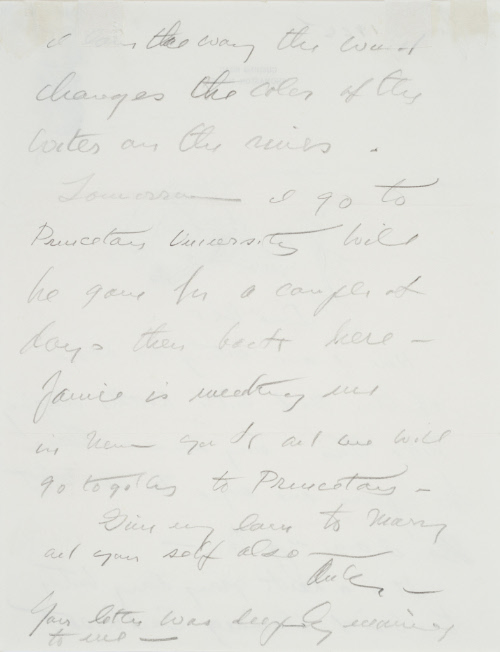 the way the wind
changes the color of the
water on the river.
Tomorrow — I go to
Princeton University Will
be gone for a couple of
days then back here —
Janice is meeting me
in New York and we will
go together to Princeton —
Give my love to Mary
and your self also —
Your letter was deeply
to me —